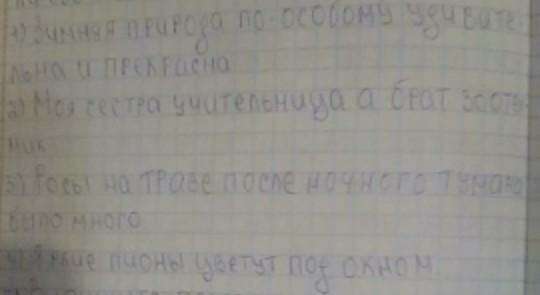 1) Зимняя природа по-особому удивите
льна и прекрасна
2) Моя сестра учительница а брат зооте
ник
3) Росы на траве после ночного тумана
было много
4) Яркие пионы цветут под окном.